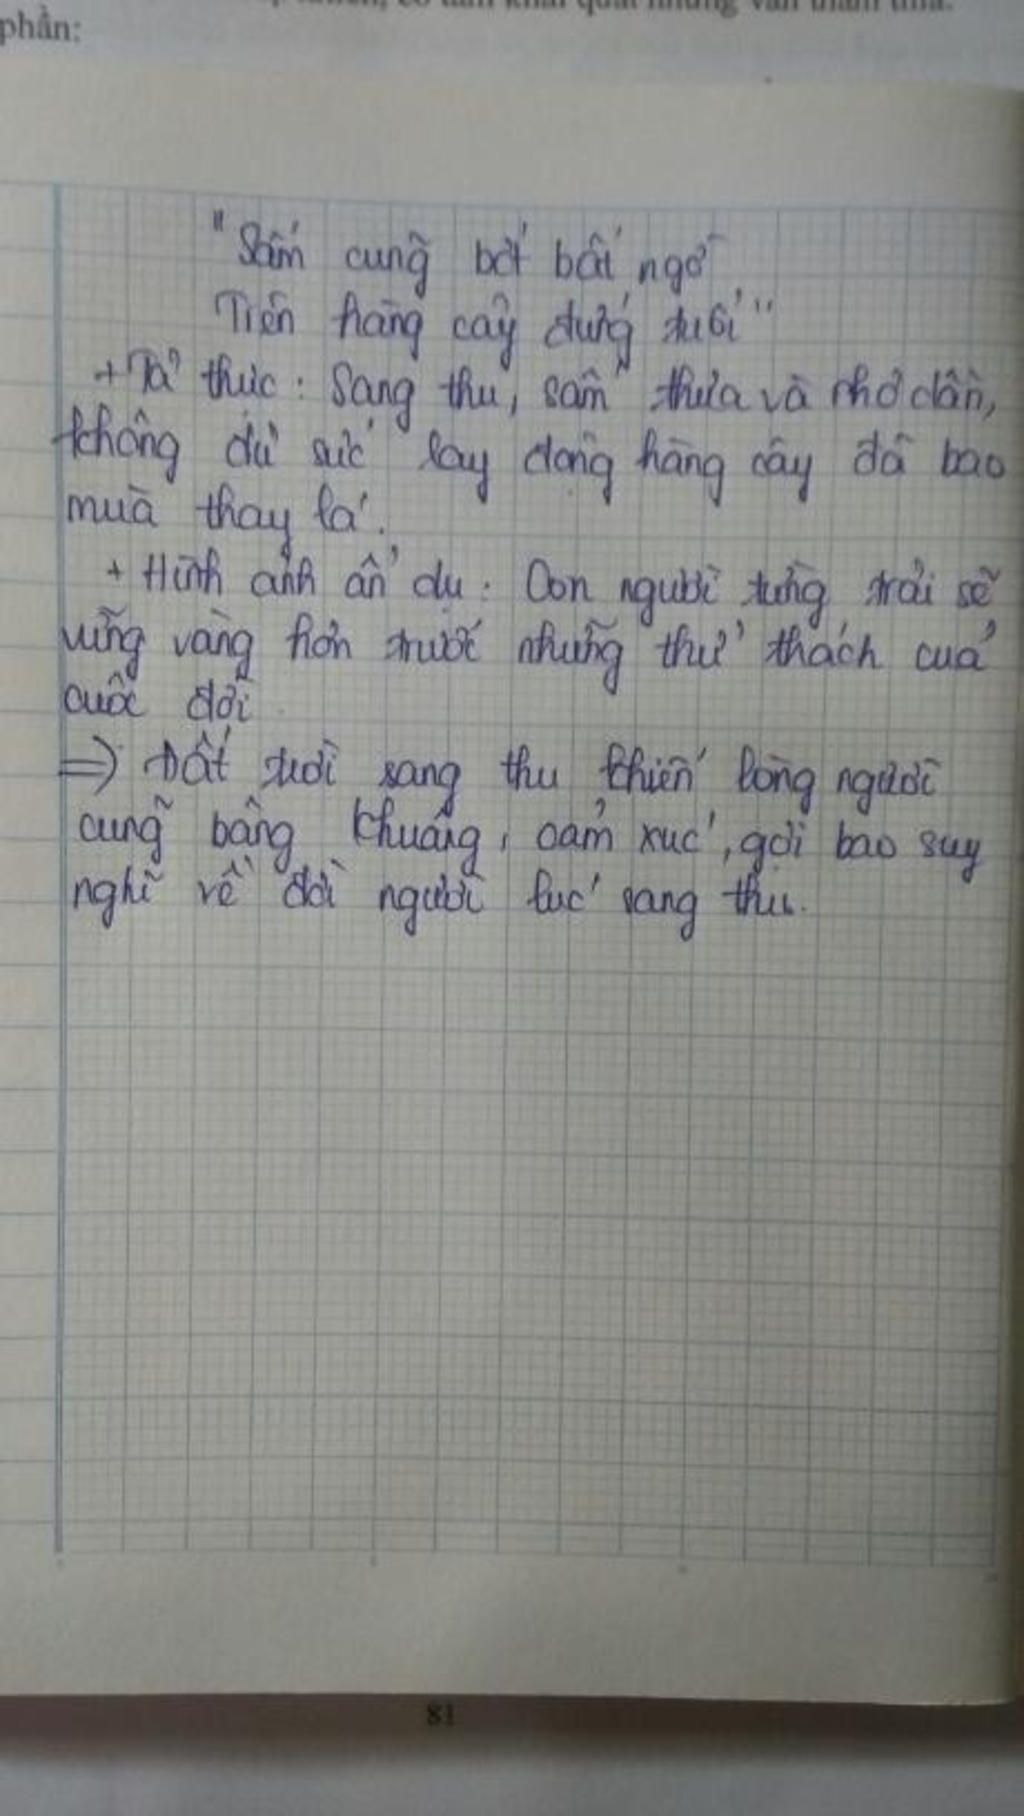 phần:
"Sấm cũng bớt bất ngờ
Trên hàng cây đứng tuổi"
+ Tả thực: Sang thu, sấm thưa và nhỏ dần,
không đủ sức lay động hàng cây đã bao
mùa thay lá.
+ Hình ảnh ẩn dụ: Con người từng trải sẽ
vững vàng hơn trước những thử thách của
cuộc đời
=> Đất trời sang thu khiến lòng người
cũng bâng khuâng, cảm xúc, gợi bao suy
nghĩ về đời người lúc sang thu.
81